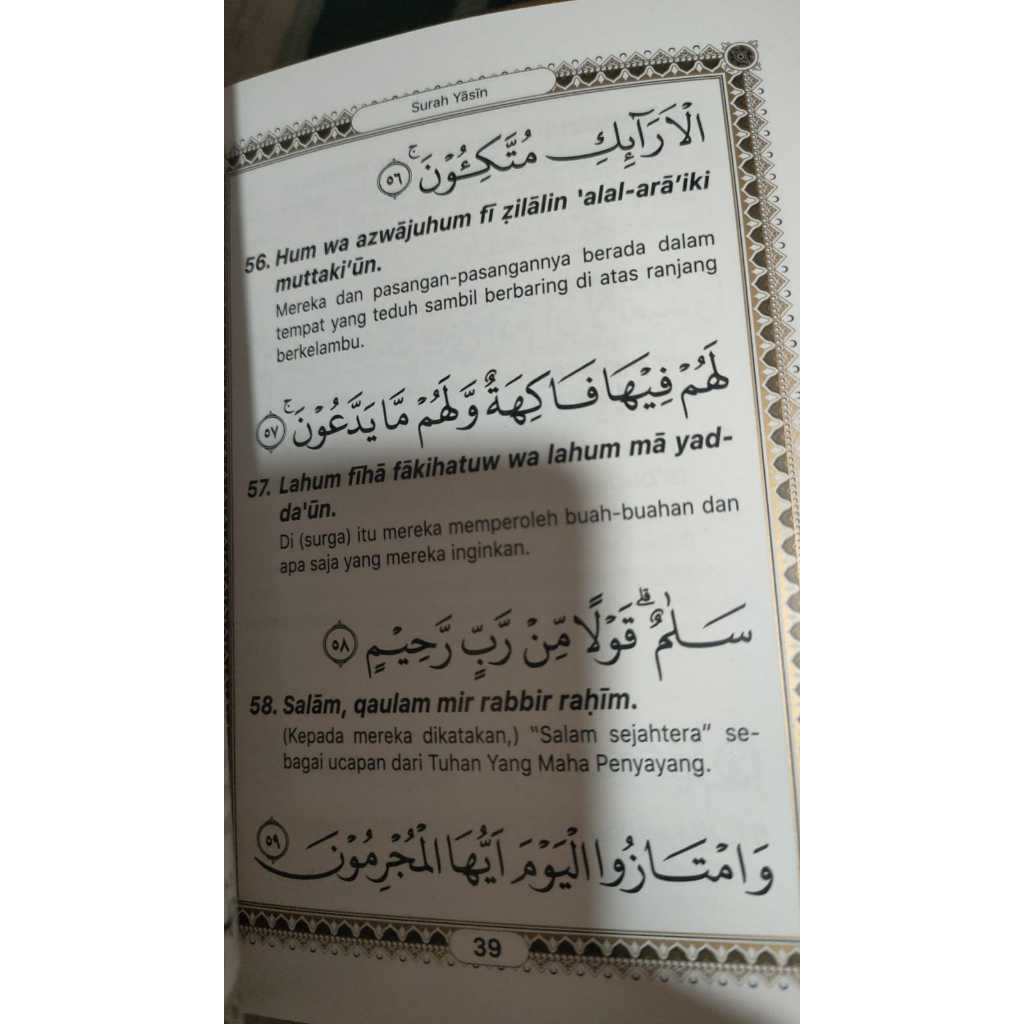 Surah Yāsīn
الْاَرَاۤىِٕكِ مُتَّكِـُٔوْنَ ۚ ٥٦
56. Hum wa azwājuhum fī ẓilālin 'alal-arā'iki
muttaki'ūn.
Mereka dan pasangan-pasangannya berada dalam
tempat yang teduh sambil berbaring di atas ranjang
berkelambu.
لَهُمْ فِيْهَا فَاكِهَةٌ وَّلَهُمْ مَّا يَدَّعُوْنَ ۚ ٥٧
57. Lahum fīhā fākihatuw wa lahum mā yad-
da'ūn.
Di (surga) itu mereka memperoleh buah-buahan dan
apa saja yang mereka inginkan.
سَلٰمٌۗ قَوْلًا مِّنْ رَّبٍّ رَّحِيْمٍ ٥٨
58. Salām, qaulam mir rabbir raḥīm.
(Kepada mereka dikatakan,) "Salam sejahtera" se-
bagai ucapan dari Tuhan Yang Maha Penyayang.
وَامْتَازُوا الْيَوْمَ اَيُّهَا الْمُجْرِمُوْنَ ٥٩
39